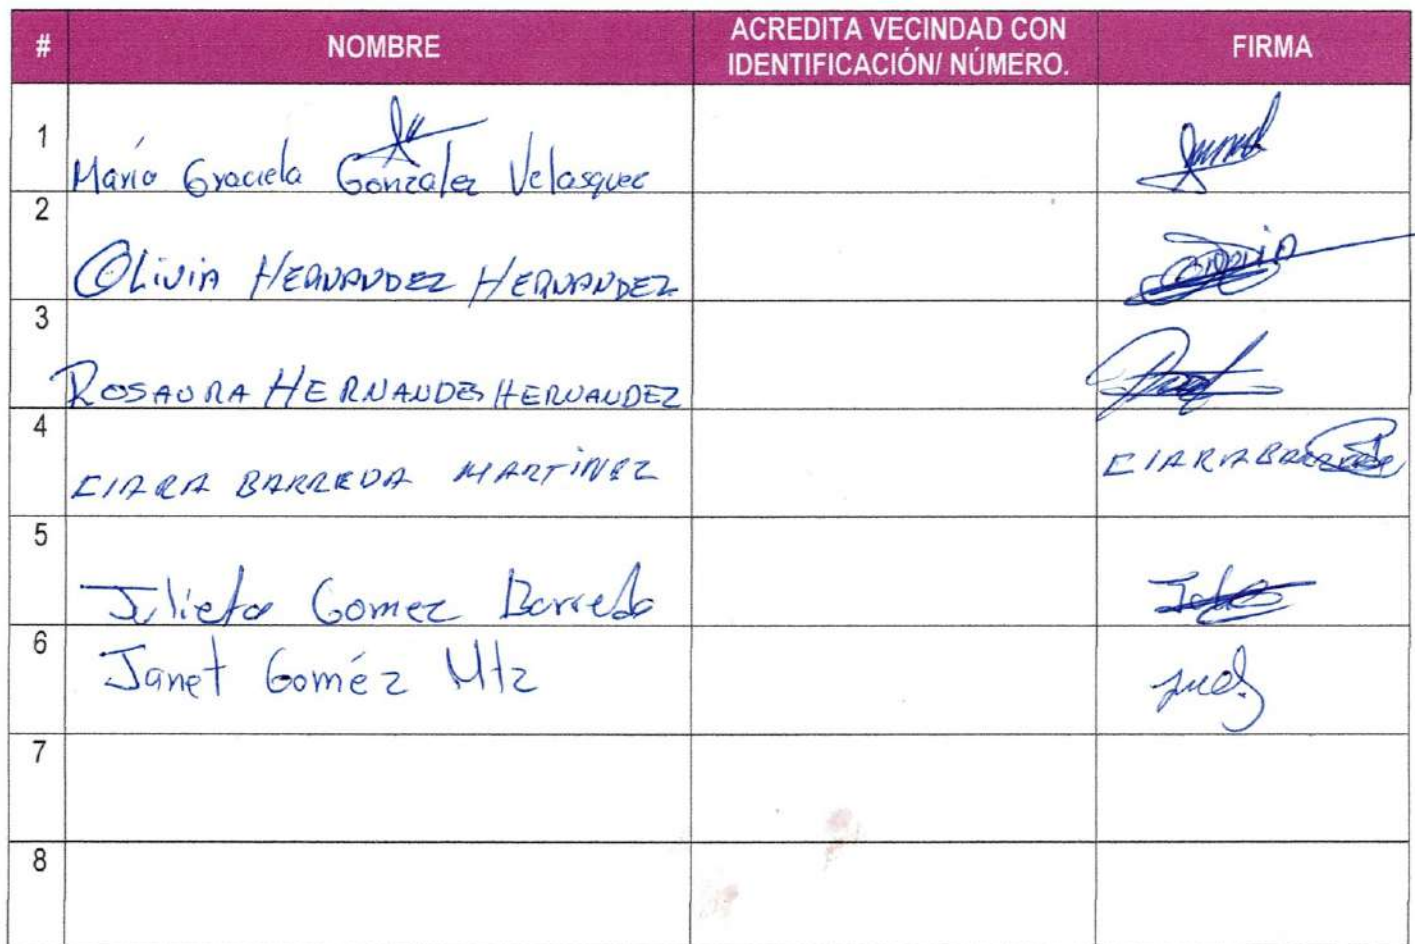 # NOMBRE ACREDITA VECINDAD CON IDENTIFICACIÓN/ NÚMERO. FIRMA
1 María Graciela Gonzalez Velasquez
2 OLIVIA HERNANDEZ HERNANDEZ
3 ROSAURA HERNANDES HERNANDEZ
4 CIARA BARREDA MARTíNEZ CIARA BARREDA
5 Julieta Gomez Barreda
6 Janet Goméz Mtz
7
8